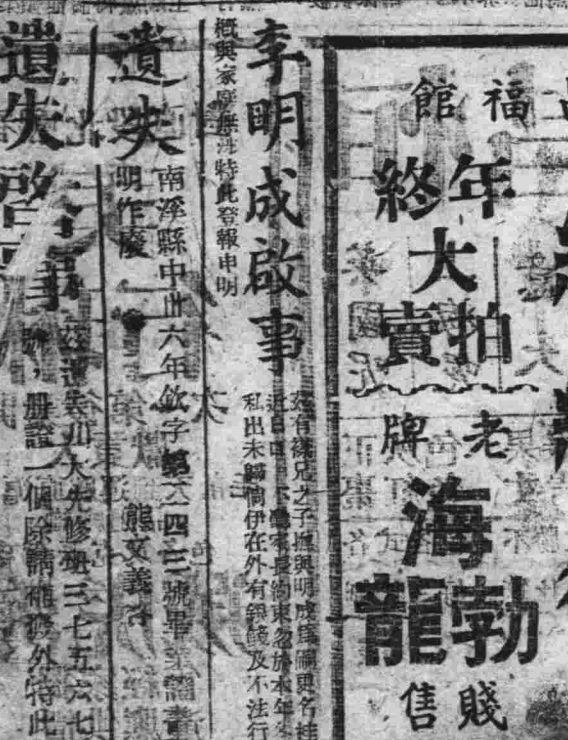 福館
年終
大
拍賣
老牌
海
勃龍
賤售
李明成啟事
有 兄之子 與明成 更名
近日 家長約束忽於本年
私出未歸倘伊在外有銀錢及不法行
概與家 無涉特此登報申明
遺失
南溪縣中卅六年欽字第六四三號畢業證書
明作廢
熊文義啓
遺失啓事
遺失川大先修班三七五六七
號，册證一個除請補發外特此